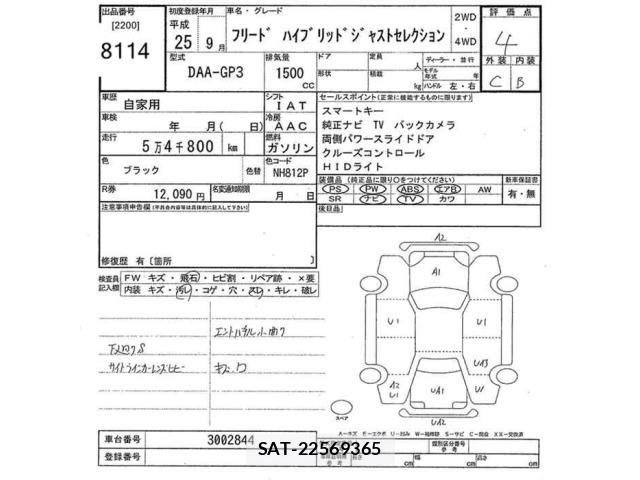 出品番号 初度登録年月 車名・グレード 2WD・4WD 評価点
[2200] 平成 25年 9月 フリード ハイブリッドジャストセレクション 4
8114
型式 排気量 ドア 定員 人 ディーラー・並行 外装 内装
DAA-GP3 1500 cc 形状 積載 kg モデル年式 年 ハンドル 左・右 C B
車歴 自家用 シフト IAT セールスポイント(正常に機能するものに限ります)
車検 年 月( 日) 冷房 AAC
スマートキー
純正ナビ TV バックカメラ
両側パワースライドドア
クルーズコントロール
HIDライト
走行 5万4千800 km 燃料 ガソリン
色 ブラック 色替 色コード NH812P
R券 12,090円 名変通知期限 月 日
装備品(純正品に限り○をつけてください) 新車保証書
PS PW ABS エアB AW 有・無
SR ナビ TV カワ
注意事項申告欄 後日品
修復歴 有〔箇所 〕
検査員記入欄
FW キズ・飛石・ヒビ割・リペア跡・×要
内装 キズ・汚レ・コゲ・穴・スレ・キレ・破レ
A2
A1
U1 U1
UA3
A2 U1 UA1 U1
UA2
スペア
A-キズ E-エクボ U-凹み W-補修跡 S-サビ C-腐食 X・XX-交換済
車台番号 3002844
登録番号
類別区分番号
参考
長さ cm 幅 cm 高さ cm
SAT-22569365